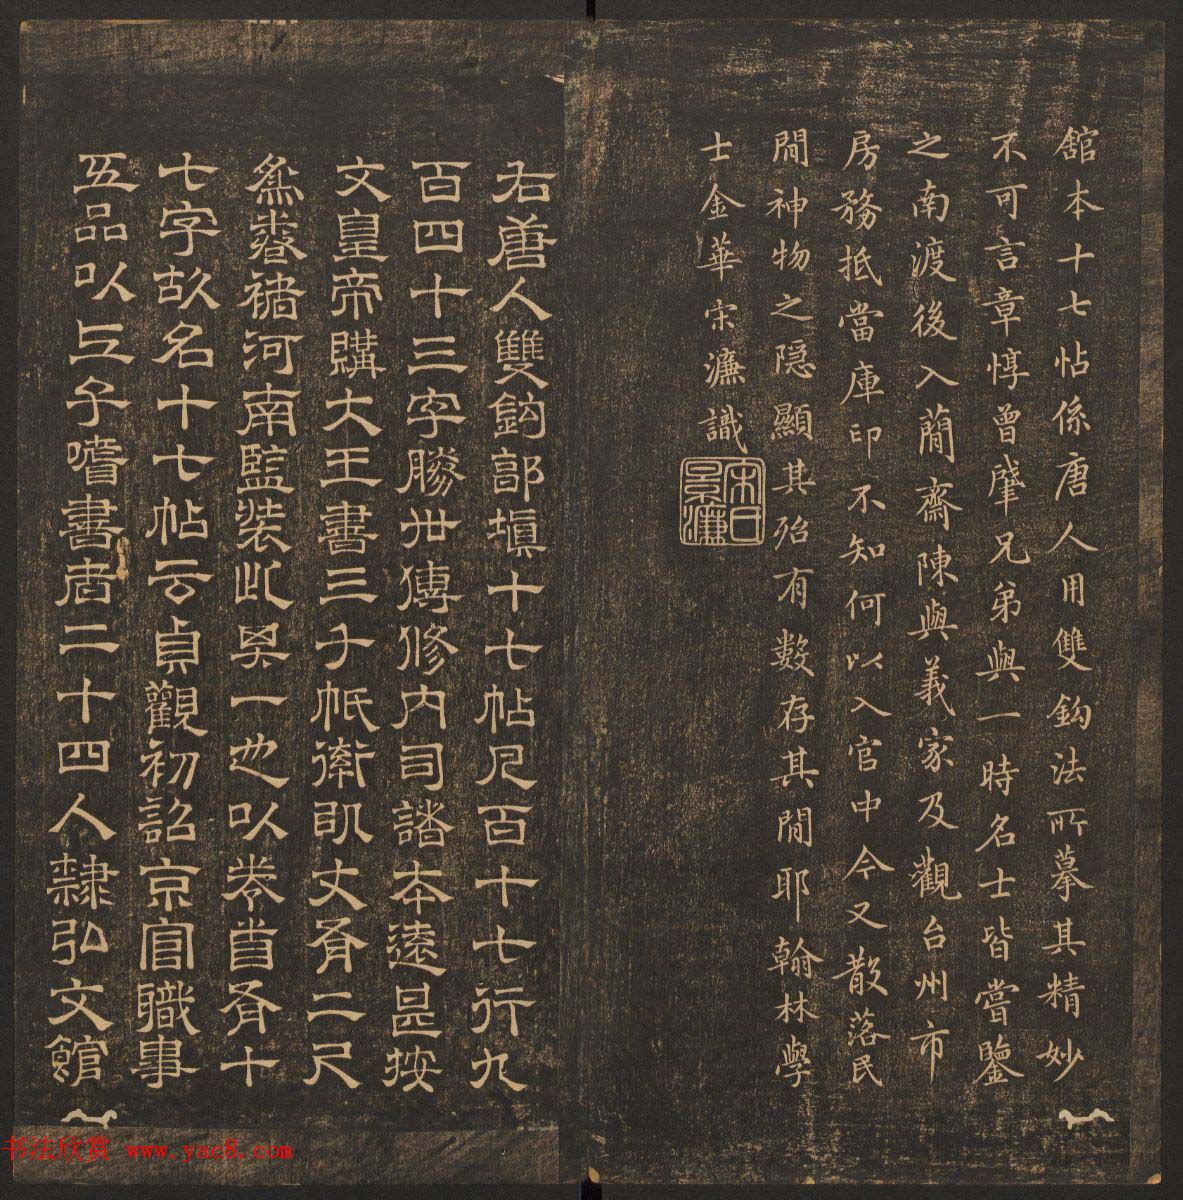 館本十七帖係唐人用雙鈎法所摹其精妙
不可言章惇曾肇兄弟與一時名士皆嘗鑒
之南渡後入蕳齋陳與義家及觀台州市
房務抵當庫印不知何以入官中今又散落民
間神物之隐顯其殆有數存其間耶翰林學
士金華宋濂識
宋氏景濂
右唐人雙鈎郭填十七帖凡百十七行九
百四十三字勝世傳修内司諸本遠甚按
文皇帝購大王書三千帋率以丈有二尺
爲卷褚河南監裝此其一也以卷首有十
七字故名十七帖云貞觀初詔京官職事
五品以上子嗜書者二十四人隸弘文館
书法欣赏 www.yac8.com